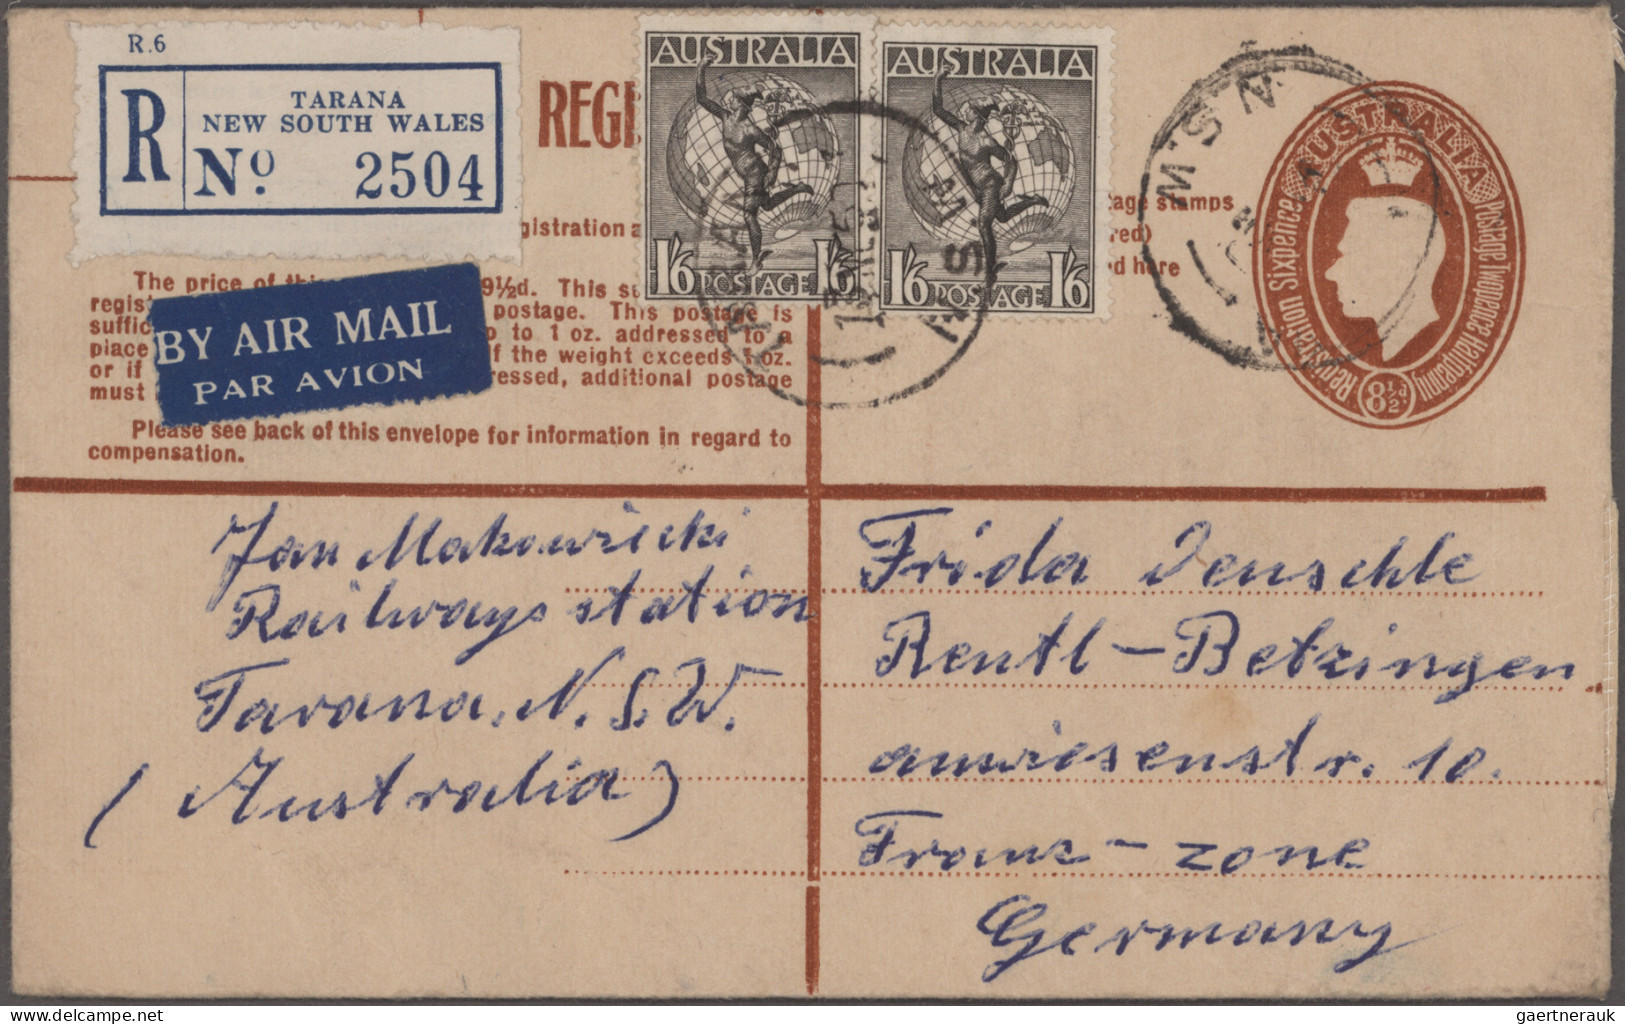 R.6
R
TARANA
NEW SOUTH WALES
No. 2504
REGI
AUSTRALIA
1/6 POSTAGE 1/6
AUSTRALIA
1/6 POSTAGE 1/6
N.S.W
AUSTRALIA
Registration Sixpence
Postage Twopence Halfpenny
8½d
gistration a
age stamps
red)
d here
The price of thi 9½d. This su
regist postage. This postage is
suffic p to 1 oz. addressed to a
place f the weight exceeds 1 oz.
or if ressed, additional postage
must
BY AIR MAIL
PAR AVION
Please see back of this envelope for information in regard to
compensation.
Jan Makowiecki
Railways station
Tarana. N.S.W.
(Australia)
Frida Deuschle
Reutl-Betzingen
auwiesenstr. 10.
Franz-zone
Germany
gaertnerauk